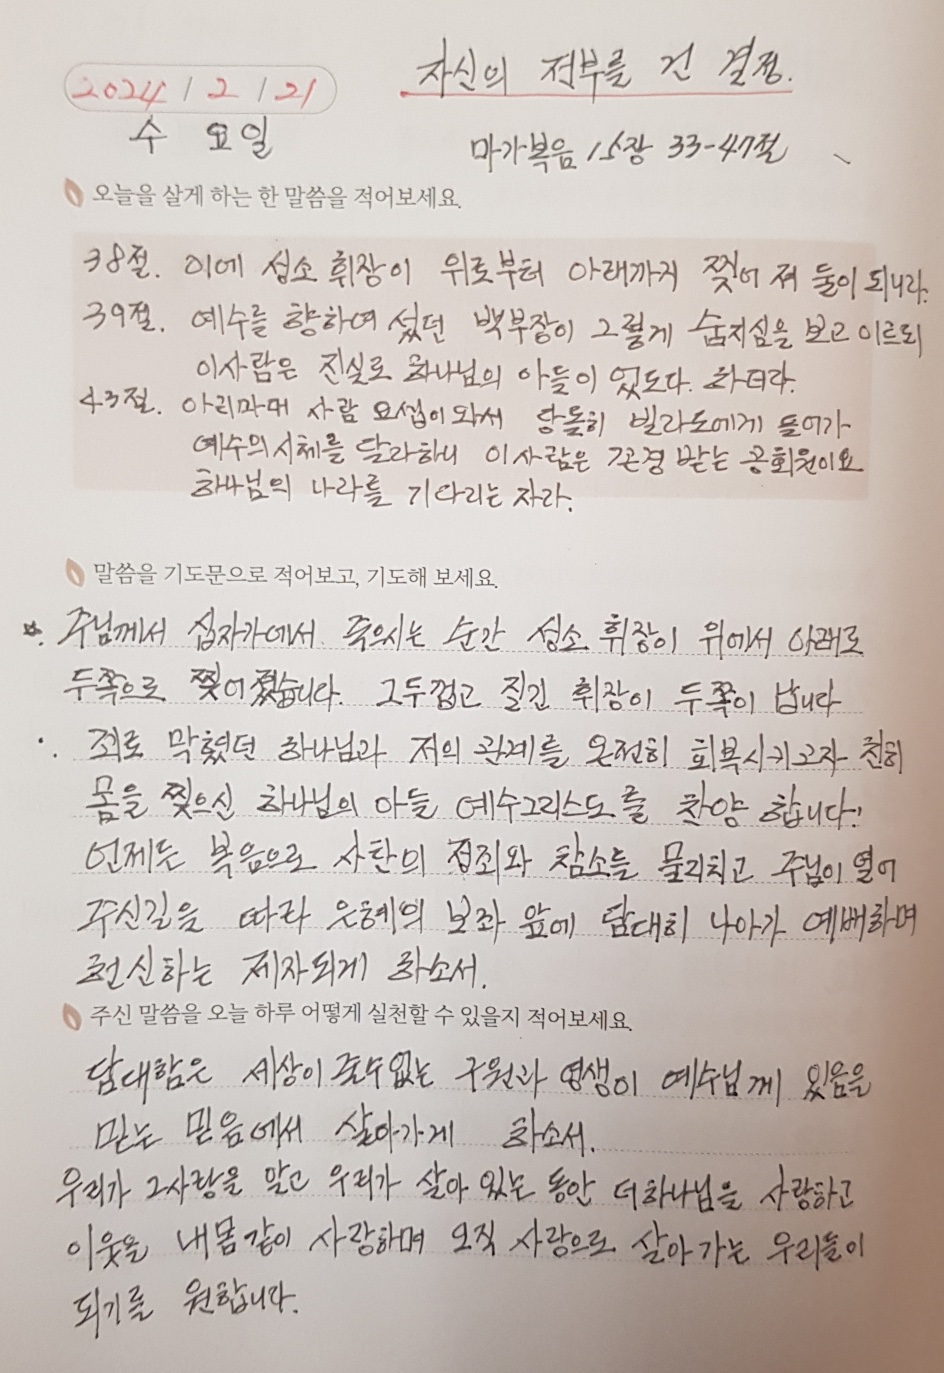 자신의 전부를 건 결정.
2024 / 2 / 21
수요일
마가복음 15장 33-47절
오늘을 살게 하는 한 말씀을 적어보세요.
38절. 이에 성소 휘장이 위로부터 아래까지 찢어 져 둘이 되니라.
39절. 예수를 향하여 섰던 백부장이 그렇게 숨지심을 보고 이르되
이사람은 진실로 하나님의 아들이 었도다. 하더라.
43절. 아리마대 사람 요셉이 와서 당돌히 빌라도에게 들어가
예수의 시체를 달라하니 이사람은 존경 받는 공회원이요
하나님의 나라를 기다리는 자라.
말씀을 기도문으로 적어보고, 기도해 보세요.
주님께서 십자가에서 죽으시는 순간 성소 휘장이 위에서 아래로
두쪽으로 찢어 졌습니다. 그두껍고 질긴 휘장이 두쪽이 납니다
죄로 막혔던 하나님과 저의 관계를 온전히 회복시키고자 친히
몸을 찢으신 하나님의 아들 예수그리스도를 찬양 합니다!
언제든 복음으로 사탄의 정죄와 참소를 물리치고 주님이 열어
주신길을 따라 은혜의 보좌 앞에 담대히 나아가 예배하며
헌신하는 제자되게 하소서.
주신 말씀을 오늘 하루 어떻게 실천할 수 있을지 적어보세요.
담대함은 세상이 줄수없는 구원과 영생이 예수님께 있음을
믿는 믿음에서 살아가게 하소서.
우리가 그사랑을 알고 우리가 살아 있는 동안 더하나님을 사랑하고
이웃을 내몸같이 사랑하며 오직 사랑으로 살아 가는 우리들이
되기를 원합니다.